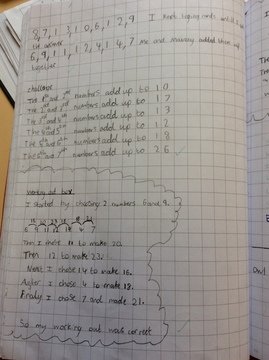 8, 7, 1, 3, 1 0, 6, 1 2, 9 I kept taking cards until I
the answer
6, 9, 1 1, 1 2, 1 4, 4, 7 Me and added them up
together
challenge
The 1st and 2nd numbers add up to 1 0
The 2nd and 3rd numbers add up to 1 7
The 3rd and 4th numbers add up to 1 3
The 4th and 5th numbers add up to 1 2
The 5th and 6th numbers add up to 1 8
The 6th and 7th numbers add up to 2 6
working out box
I started by choosing 2 numbers 6 and 9.
6 9 11 12 14 4 7
Then I chose 11 to make 20.
Then 12 to make 23.
Next I chose 14 to make 16.
After I chose 4 to make 18.
Finaly I chose 7 and made 21.
So my working out was correct